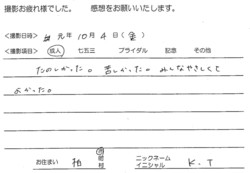 撮影お疲れ様でした。 感想をお願いいたします。
<撮影日時> 元年 10月 4日 (金)
<撮影項目> 成人 七五三 ブライダル 記念 その他
たのしかった。苦しかった。みしなやさしくて
よかった。
お住まい 柏 市町村 ニックネーム イニシャル K.T